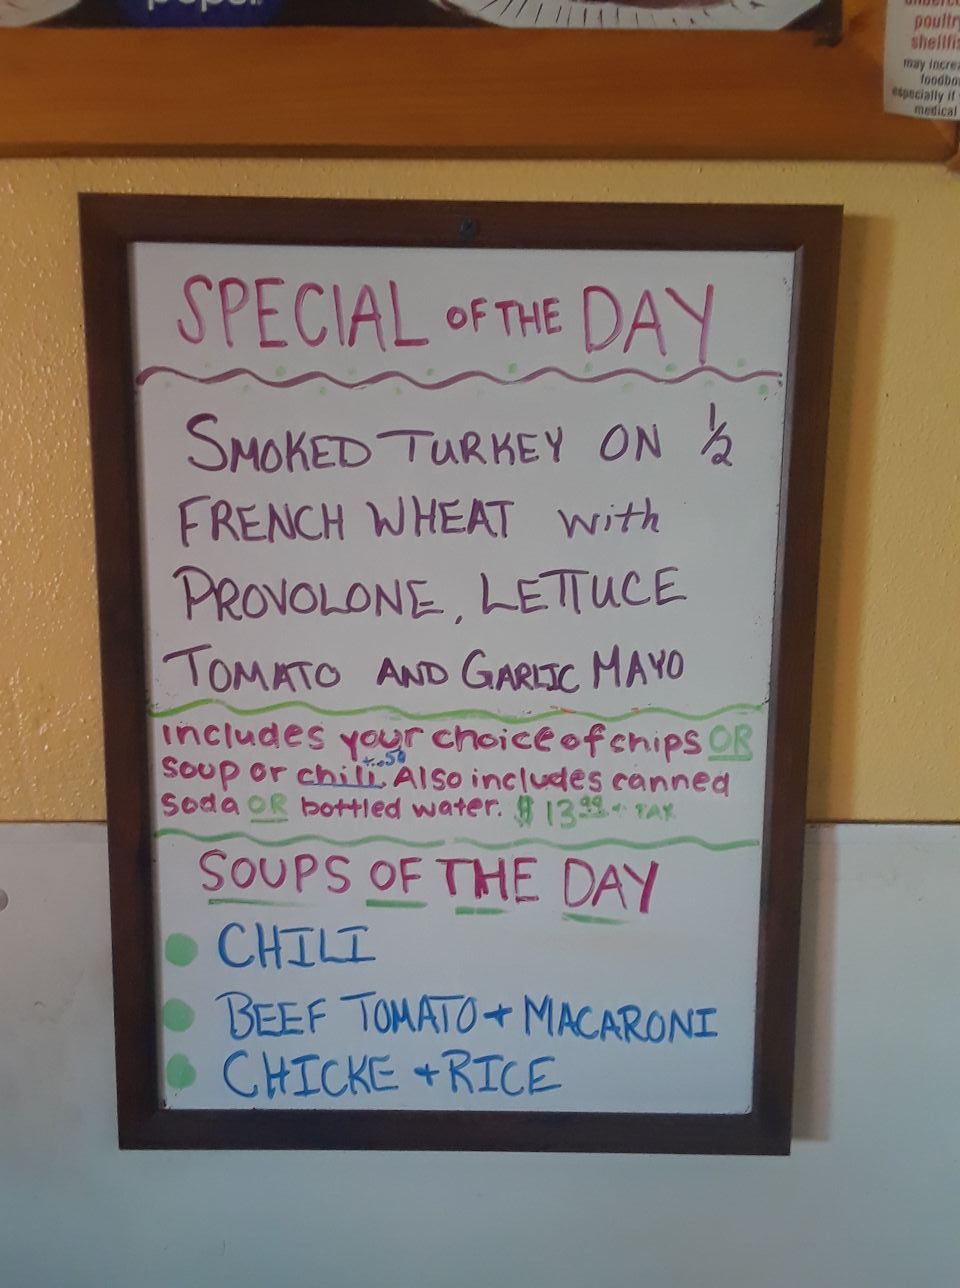 pepsi
poultry
shellfis
may increa
foodbo
especially if
medical
SPECIAL OF THE DAY
SMOKED TURKEY ON 1/2
FRENCH WHEAT with
PROVOLONE, LETTUCE
TOMATO AND GARLIC MAYO
includes your choice of chips OR
+.50
soup or chili. Also includes canned
soda OR bottled water. $13.99 + TAX
SOUPS OF THE DAY
CHILI
BEEF TOMATO + MACARONI
CHICKE + RICE